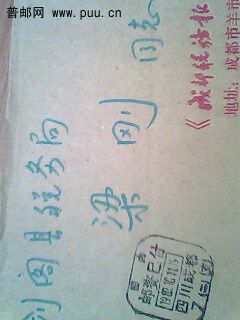 普邮网 www.puu.cn
剑阁县税务局
梁刚 同志
《成都税务报
地址:成都市羊市
国内
邮资已付
四川成都